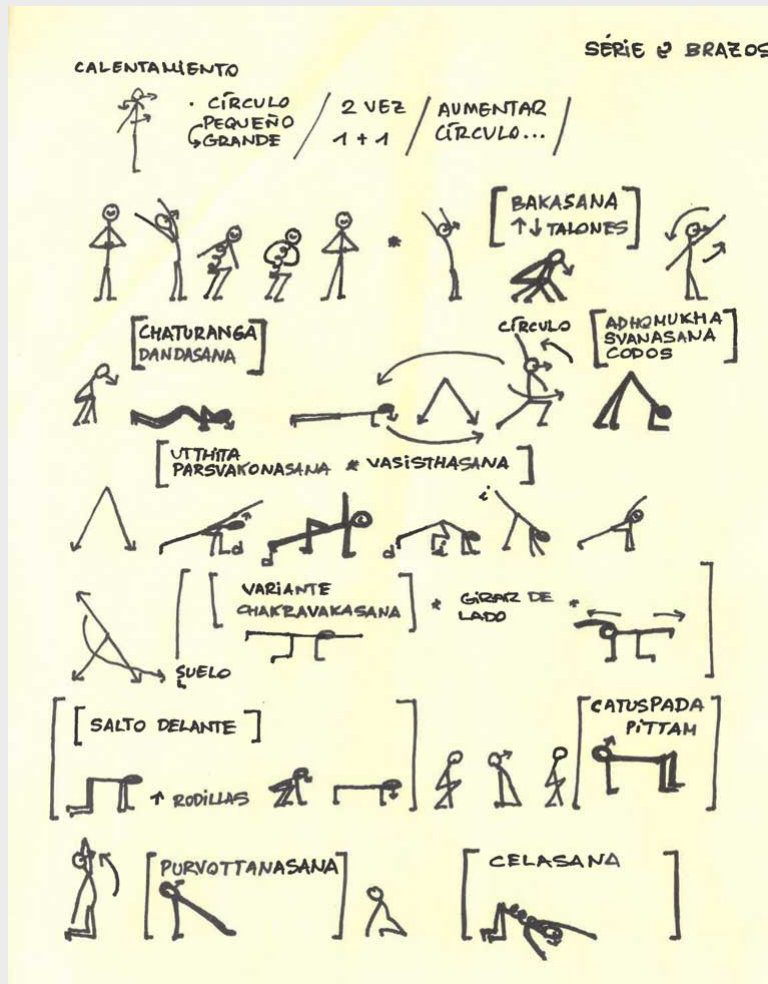 SÉRIE BRAZOS
CALENTAMIENTO
· CÍRCULO
PEQUEÑO
GRANDE
2 VEZ
1 + 1
AUMENTAR
CÍRCULO...
BAKASANA
↑↓ TALONES
*
CHATURANGA
DANDASANA
CÍRCULO
ADHOMUKHA
SVANASANA
CODOS
UTTHITA
PARSVAKONASANA * VASISTHASANA
d
d
d
i
i
VARIANTE
CHAKRAVAKASANA
* GIRAR DE
LADO *
SUELO
SALTO DELANTE
↑ RODILLAS
CATUSPADA
PITTAM
PURVOTTANASANA
CELASANA